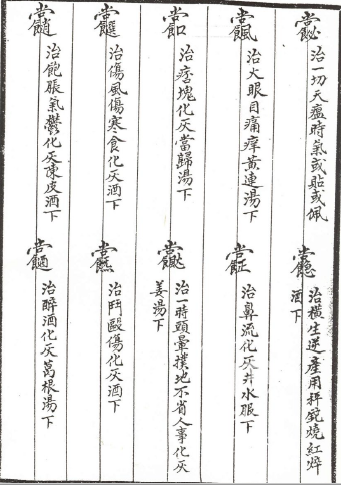 治一切天瘟時氣或貼或佩
治橫生逆產用秤錘燒紅焠
酒下
治火眼目痛痒黃連湯下
治鼻流化灰井水服下
治痞塊化灰當歸湯下
治一時頭暈撲地不省人事化灰
姜湯下
治傷風傷寒食化灰酒下
治鬥毆傷化灰酒下
治飽脹氣鬱化灰陳皮酒下
治醉酒化灰葛根湯下